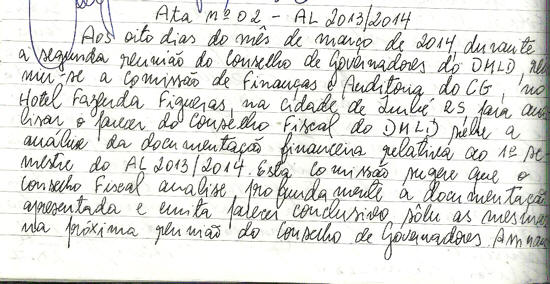 Ata nº 02 - AL 2013/2014
Aos oito dias do mês de março de 2014, durante
a segunda reunião do Conselho de Governadores do DMLD, reu
niu-se a Comissão de Finanças e Auditoria do CG, no
Hotel Fazenda Figueiras, na cidade de Imbé RS para ana
lisar o parecer do Conselho Fiscal do DMLD sobre a
análise da documentação financeira relativa ao 1º se
mestre do AL 2013/2014. Esta comissão sugere que o
Conselho Fiscal analise profundamente a documentação
apresentada e emita parecer conclusivo sobre as mesmas
na próxima reunião do Conselho de Governadores